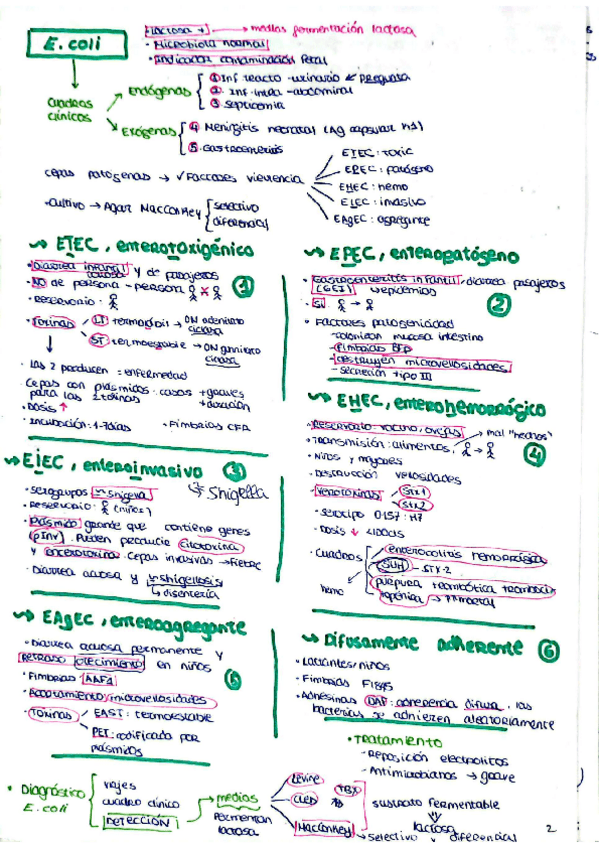 E. coli
Lactosa + → medios fermentación lactosa
· Microbiota normal
· Indicador contaminación fecal
cuadros clínicos
Endógenas
① Inf tracto-urinario ← pregunta
② Inf intra-abdominal
③ Septicemia
Exógenas
④ Meningitis neonatal (Ag capsular K1)
⑤ Gastroenteritis
cepas patogenas → ✓ Factores virulencia
ETEC: toxic
EPEC: patógeno
EHEC: hemo
EIEC: invasivo
EAgEC: agregante
· Cultivo → Agar MacConkey
selectivo
diferencial
ETEC, enterotoxigénico
①
· Diarrea infantil acuosa y de viajeros
· NO de persona - persona
· Reservorio:
· Toxinas
LT termolábil → ON adenilato ciclasa
ST: termoestable → ON guanilato ciclasa
· Las 2 producen = enfermedad
Cepas con plásmidos: casos + graves
para las 2 toxinas + duración
· Dosis ↑
· Incubación: 1-7 días · Fimbrias CFA
EPEC, enteropatógeno
· Gastroenteritis infantil, diarrea viajeros
(GEI) epidemias
②
· Factores patogenicidad
- colonizan mucosa intestino
- Fimbrias BFP
- destruyen microvellosidades
- secreción tipo III
EHEC, enterohemorrágico
· Reservorio: vacuno, ovejas → mal "hechos"
· Transmisión: alimentos, →
④
· Niños y mayores
· Destrucción vellosidades
· Verotoxinas
Stx1
Stx2
· serotipo O157:H7
· Dosis ↓ <100UFC
· Cuadros
enterocolitis hemorrágica
SUH - STX-2
púrpura trombótica trombocitopénica → mortal
hemo
EIEC, enteroinvasivo
③
· Serogrupos ≈ shigella
Shigella
· Reservorio: (niños)
· Plásmido grande que contiene genes
(pInv). Pueden producir citotoxina
y enterotoxina. Cepas invasivas → fiebre
· Diarrea acuosa y ≈ shigellosis
↳ disentería
EAgEC, enteroagregante
· Diarrea acuosa permanente y
retraso crecimiento en niños
⑤
· Fimbrias AAF1
· Acortamiento microvellosidades
· Toxinas
EAST: termoestable
PET: codificada por plásmidos
Difusamente adherente
⑥
· Lactantes niños
· Fimbrias F1845
· Adhesinas DAF: adherencia difusa, las
bacterias se adhieren aleatoriamente
· Tratamiento
- Reposición electrolitos
- Antimicrobianos → grave
· Diagnóstico E. coli
viajes
cuadro clínico
DETECCIÓN
→ medios
fermentan lactosa
Levine
CLED
MacConkey
sustrato fermentable
⇓
lactosa
→ Selectivo y diferencial
2